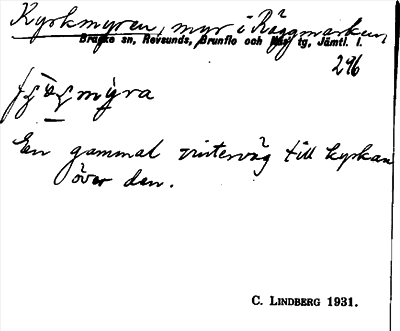 Kyrkmyren, myr i Räggmarken,
Bräcke sn, Revsunds, Brunflo och Näs tg, Jämtl. l.
296
myra
En gammal vinterväg till kyrkan
över den.
C. LINDBERG 1931.